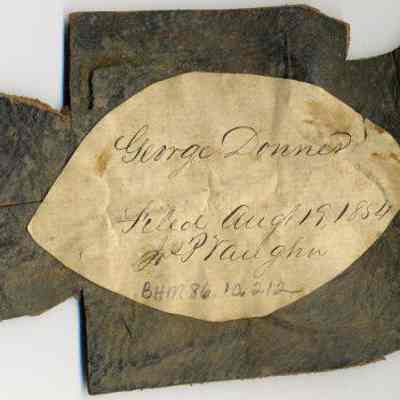 George Donner
Filed Augt 19, 1854
Jos P Vaughn
BHM 86.10.212